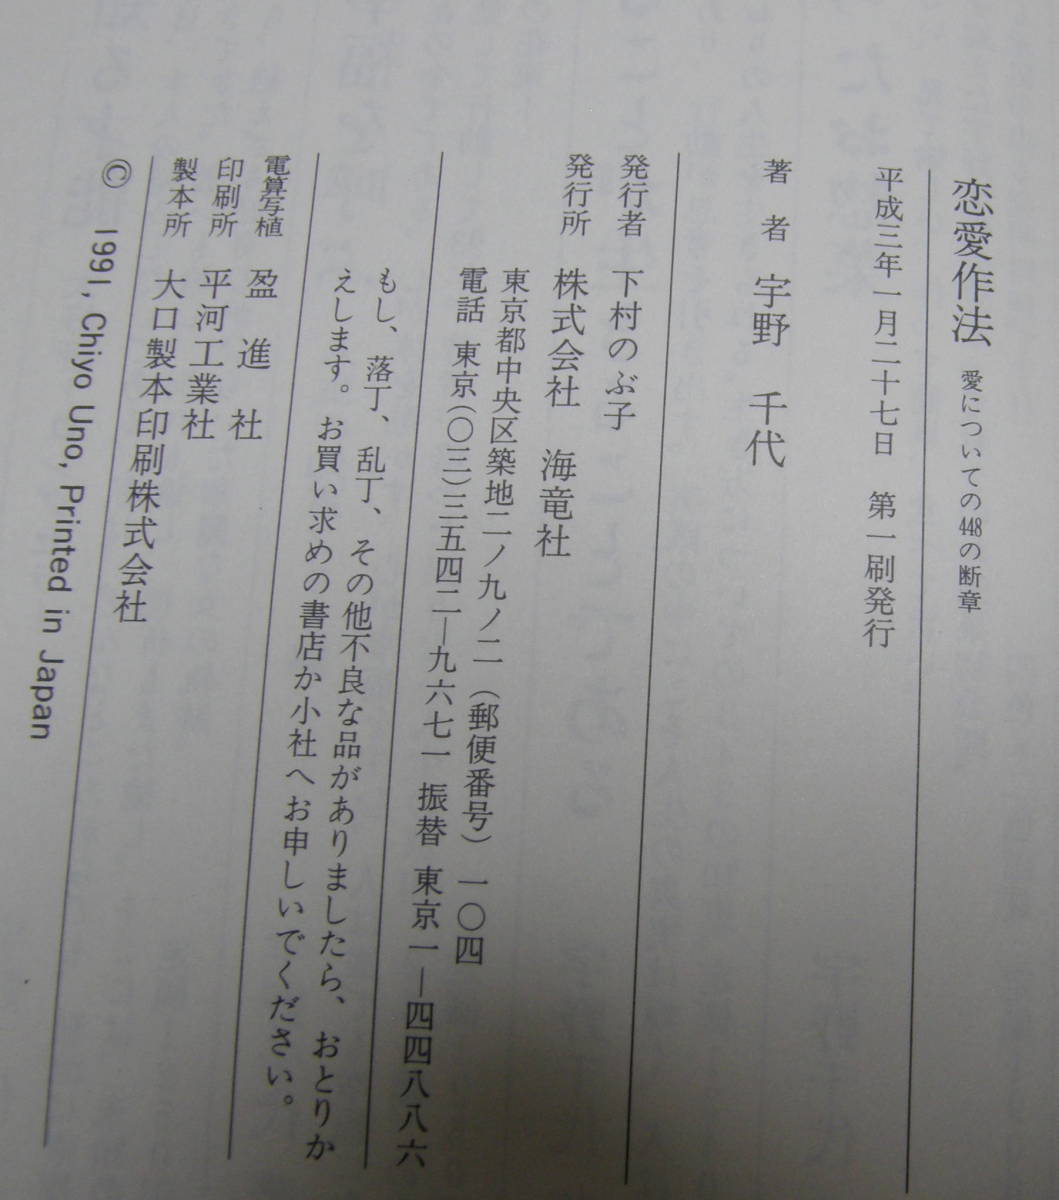 恋愛作法 愛についての448の断章
平成三年一月二十七日 第一刷発行
著者 宇野 千代
発行者 下村のぶ子
発行所 株式会社 海竜社
東京都中央区築地二ノ九ノ二(郵便番号)一〇四
電話 東京(〇三)三五四二―九六七一 振替 東京一―四四八八六
もし、落丁、乱丁、その他不良な品がありましたら、おとりか
えします。お買い求めの書店か小社へお申しいでください。
電算写植 盈進社
印刷所 平河工業社
製本所 大口製本印刷株式会社
© 1991, Chiyo Uno, Printed in Japan